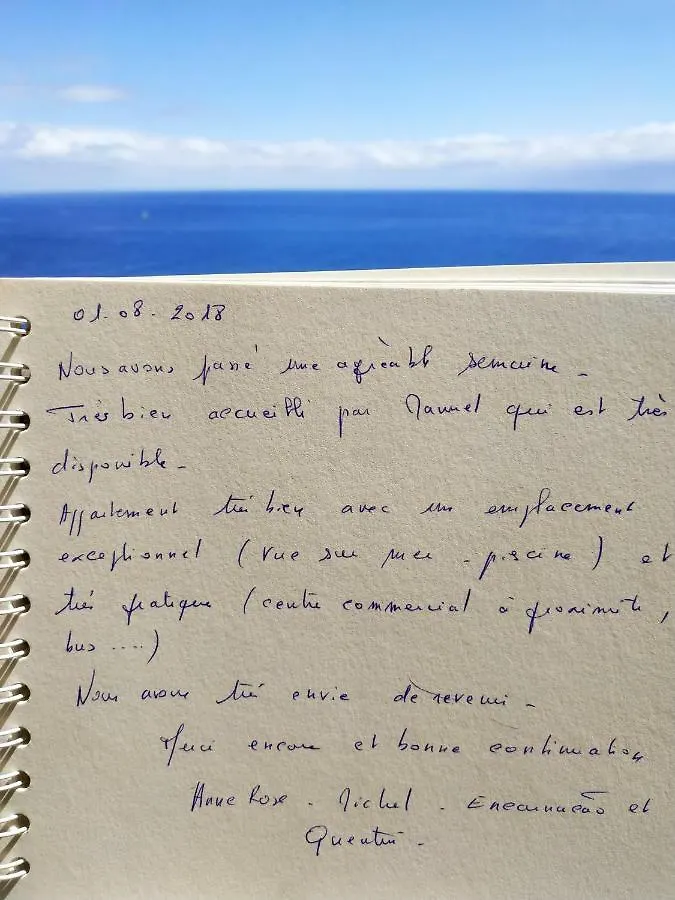 01.08.2018
Nous avons passé une agréable semaine -
Très bien accueilli par Manuel qui est très
disponible -
Appartement très bien avec un emplacement
exceptionnel (vue sur mer - piscine) et
très pratique (centre commercial à proximité,
bus ....)
Nous avons très envie de revenir -
Merci encore et bonne continuation
Anne Rose . Michel . Encarnação et
Quentin -